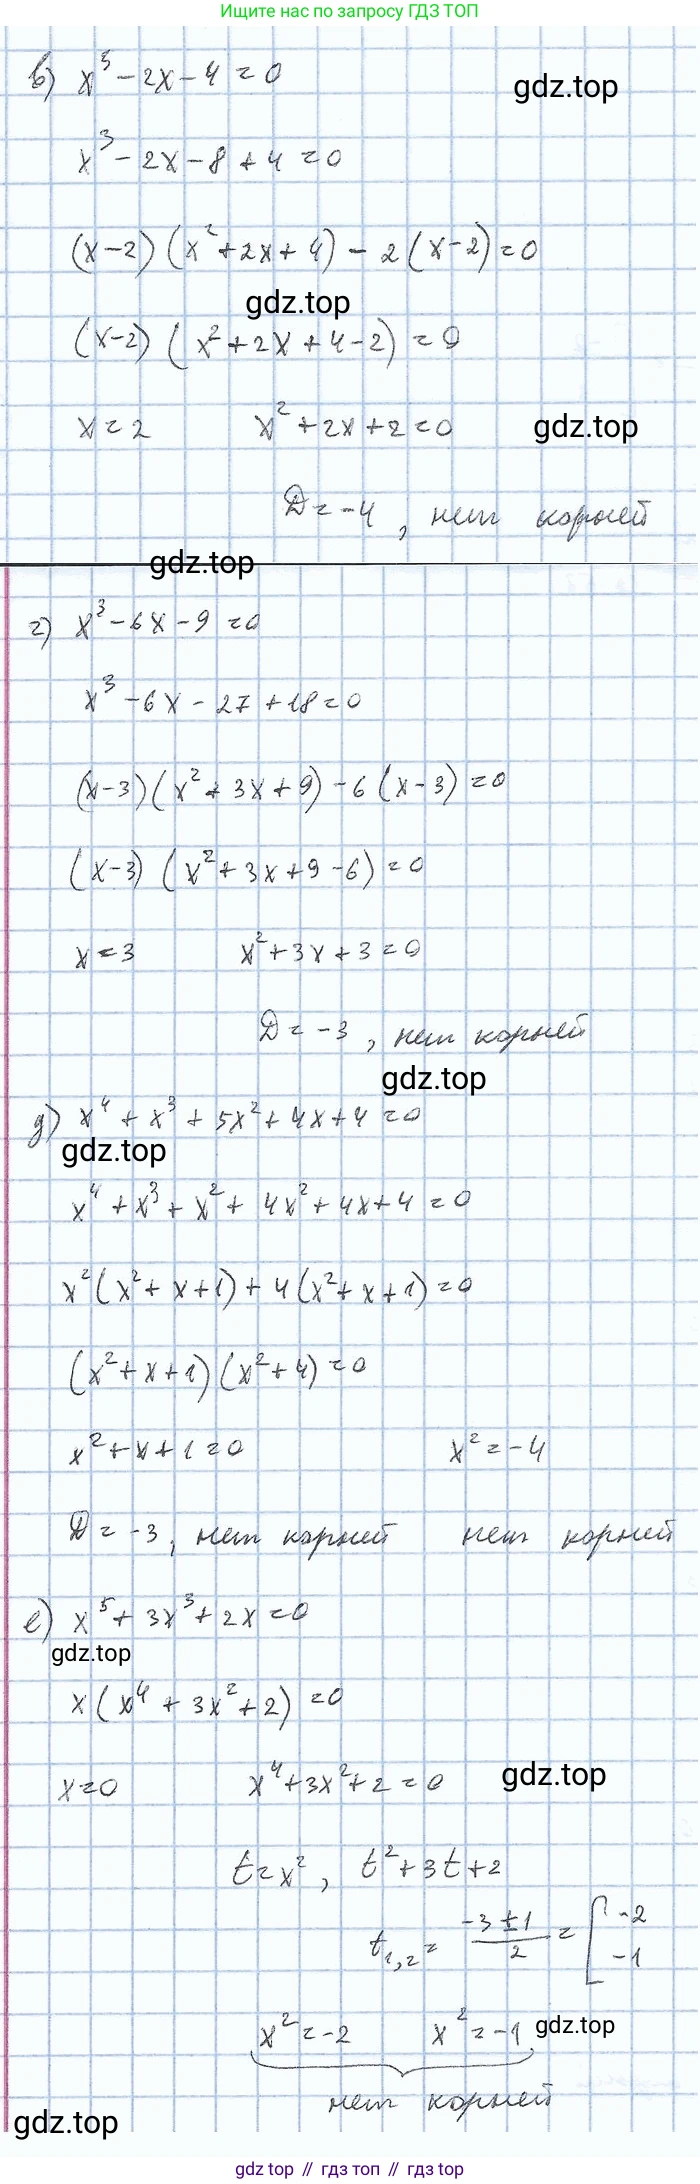 Ищите нас по запросу ГДЗ ТОП
в) x³ - 2x - 4 = 0
gdz.top
x³ - 2x - 8 + 4 = 0
(x-2)(x² + 2x + 4) - 2(x-2) = 0
gdz.top
(x-2)(x² + 2x + 4 - 2) = 0
x = 2 x² + 2x + 2 = 0 gdz.top
D = -4, нет корней
gdz.top
г) x³ - 6x - 9 = 0
x³ - 6x - 27 + 18 = 0
(x-3)(x² + 3x + 9) - 6(x-3) = 0
(x-3)(x² + 3x + 9 - 6) = 0
x = 3 x² + 3x + 3 = 0
D = -3, нет корней
gdz.top
д) x⁴ + x³ + 5x² + 4x + 4 = 0
gdz.top
x⁴ + x³ + x² + 4x² + 4x + 4 = 0
x²(x² + x + 1) + 4(x² + x + 1) = 0
(x² + x + 1)(x² + 4) = 0
x² + x + 1 = 0 x² = -4
D = -3, нет корней нет корней
е) x⁵ + 3x³ + 2x = 0
gdz.top
x(x⁴ + 3x² + 2) = 0
x = 0 x⁴ + 3x² + 2 = 0 gdz.top
t = x², t² + 3t + 2
t₁,₂ = (-3 ± 1)/2 = [ -2
-1
x² = -2 x² = -1 gdz.top
нет корней
gdz.top
gdz top // гдз топ // гдз top